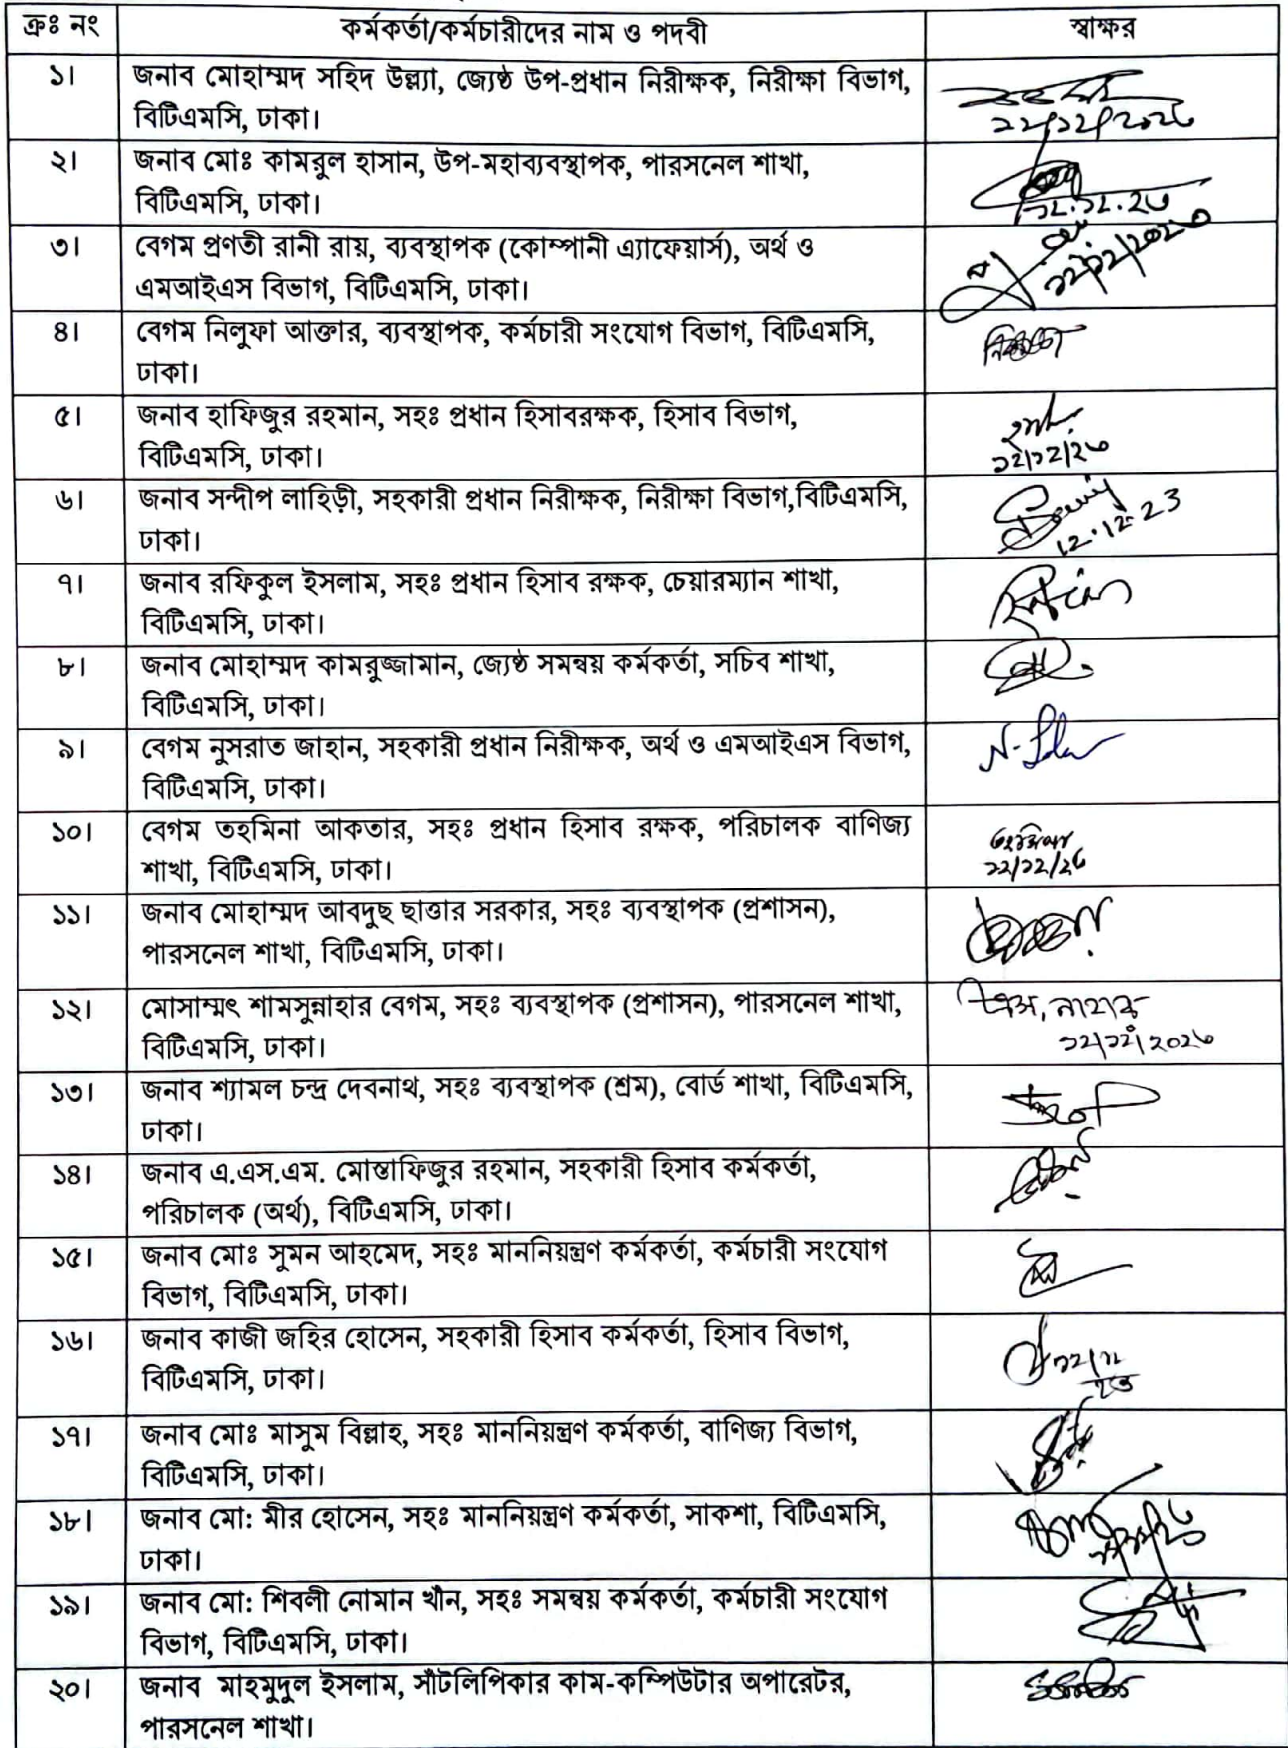 ক্রঃ নং কর্মকর্তা/কর্মচারীদের নাম ও পদবী স্বাক্ষর
১। জনাব মোহাম্মদ সহিদ উল্ল্যা, জ্যেষ্ঠ উপ-প্রধান নিরীক্ষক, নিরীক্ষা বিভাগ,
বিটিএমসি, ঢাকা।
১২/১২/২০২৩
২। জনাব মোঃ কামরুল হাসান, উপ-মহাব্যবস্থাপক, পারসনেল শাখা,
বিটিএমসি, ঢাকা।
১২.১২.২৩
৩। বেগম প্রণতী রানী রায়, ব্যবস্থাপক (কোম্পানী এ্যাফেয়ার্স), অর্থ ও
এমআইএস বিভাগ, বিটিএমসি, ঢাকা।
১২/১২/২০২৩
৪। বেগম নিলুফা আক্তার, ব্যবস্থাপক, কর্মচারী সংযোগ বিভাগ, বিটিএমসি,
ঢাকা।
৫। জনাব হাফিজুর রহমান, সহঃ প্রধান হিসাবরক্ষক, হিসাব বিভাগ,
বিটিএমসি, ঢাকা।
১২/১২/২৩
৬। জনাব সন্দীপ লাহিড়ী, সহকারী প্রধান নিরীক্ষক, নিরীক্ষা বিভাগ,বিটিএমসি,
ঢাকা।
12.12.23
৭। জনাব রফিকুল ইসলাম, সহঃ প্রধান হিসাব রক্ষক, চেয়ারম্যান শাখা,
বিটিএমসি, ঢাকা।
৮। জনাব মোহাম্মদ কামরুজ্জামান, জ্যেষ্ঠ সমন্বয় কর্মকর্তা, সচিব শাখা,
বিটিএমসি, ঢাকা।
৯। বেগম নুসরাত জাহান, সহকারী প্রধান নিরীক্ষক, অর্থ ও এমআইএস বিভাগ,
বিটিএমসি, ঢাকা।
১০। বেগম তহমিনা আকতার, সহঃ প্রধান হিসাব রক্ষক, পরিচালক বাণিজ্য
শাখা, বিটিএমসি, ঢাকা।
তহমিনা
১২/১২/২৩
১১। জনাব মোহাম্মদ আবদুছ ছাত্তার সরকার, সহঃ ব্যবস্থাপক (প্রশাসন),
পারসনেল শাখা, বিটিএমসি, ঢাকা।
১২। মোসাম্মৎ শামসুন্নাহার বেগম, সহঃ ব্যবস্থাপক (প্রশাসন), পারসনেল শাখা,
বিটিএমসি, ঢাকা।
১২/১২/২০২৩
১৩। জনাব শ্যামল চন্দ্র দেবনাথ, সহঃ ব্যবস্থাপক (শ্রম), বোর্ড শাখা, বিটিএমসি,
ঢাকা।
১৪। জনাব এ.এস.এম. মোস্তাফিজুর রহমান, সহকারী হিসাব কর্মকর্তা,
পরিচালক (অর্থ), বিটিএমসি, ঢাকা।
১৫। জনাব মোঃ সুমন আহমেদ, সহঃ মাননিয়ন্ত্রণ কর্মকর্তা, কর্মচারী সংযোগ
বিভাগ, বিটিএমসি, ঢাকা।
১৬। জনাব কাজী জহির হোসেন, সহকারী হিসাব কর্মকর্তা, হিসাব বিভাগ,
বিটিএমসি, ঢাকা।
১২/১২
২৩
১৭। জনাব মোঃ মাসুম বিল্লাহ, সহঃ মাননিয়ন্ত্রণ কর্মকর্তা, বাণিজ্য বিভাগ,
বিটিএমসি, ঢাকা।
১৮। জনাব মো: মীর হোসেন, সহঃ মাননিয়ন্ত্রণ কর্মকর্তা, সাকশা, বিটিএমসি,
ঢাকা।
১৯। জনাব মো: শিবলী নোমান খাঁন, সহঃ সমন্বয় কর্মকর্তা, কর্মচারী সংযোগ
বিভাগ, বিটিএমসি, ঢাকা।
২০। জনাব মাহমুদুল ইসলাম, সাঁটলিপিকার কাম-কম্পিউটার অপারেটর,
পারসনেল শাখা।